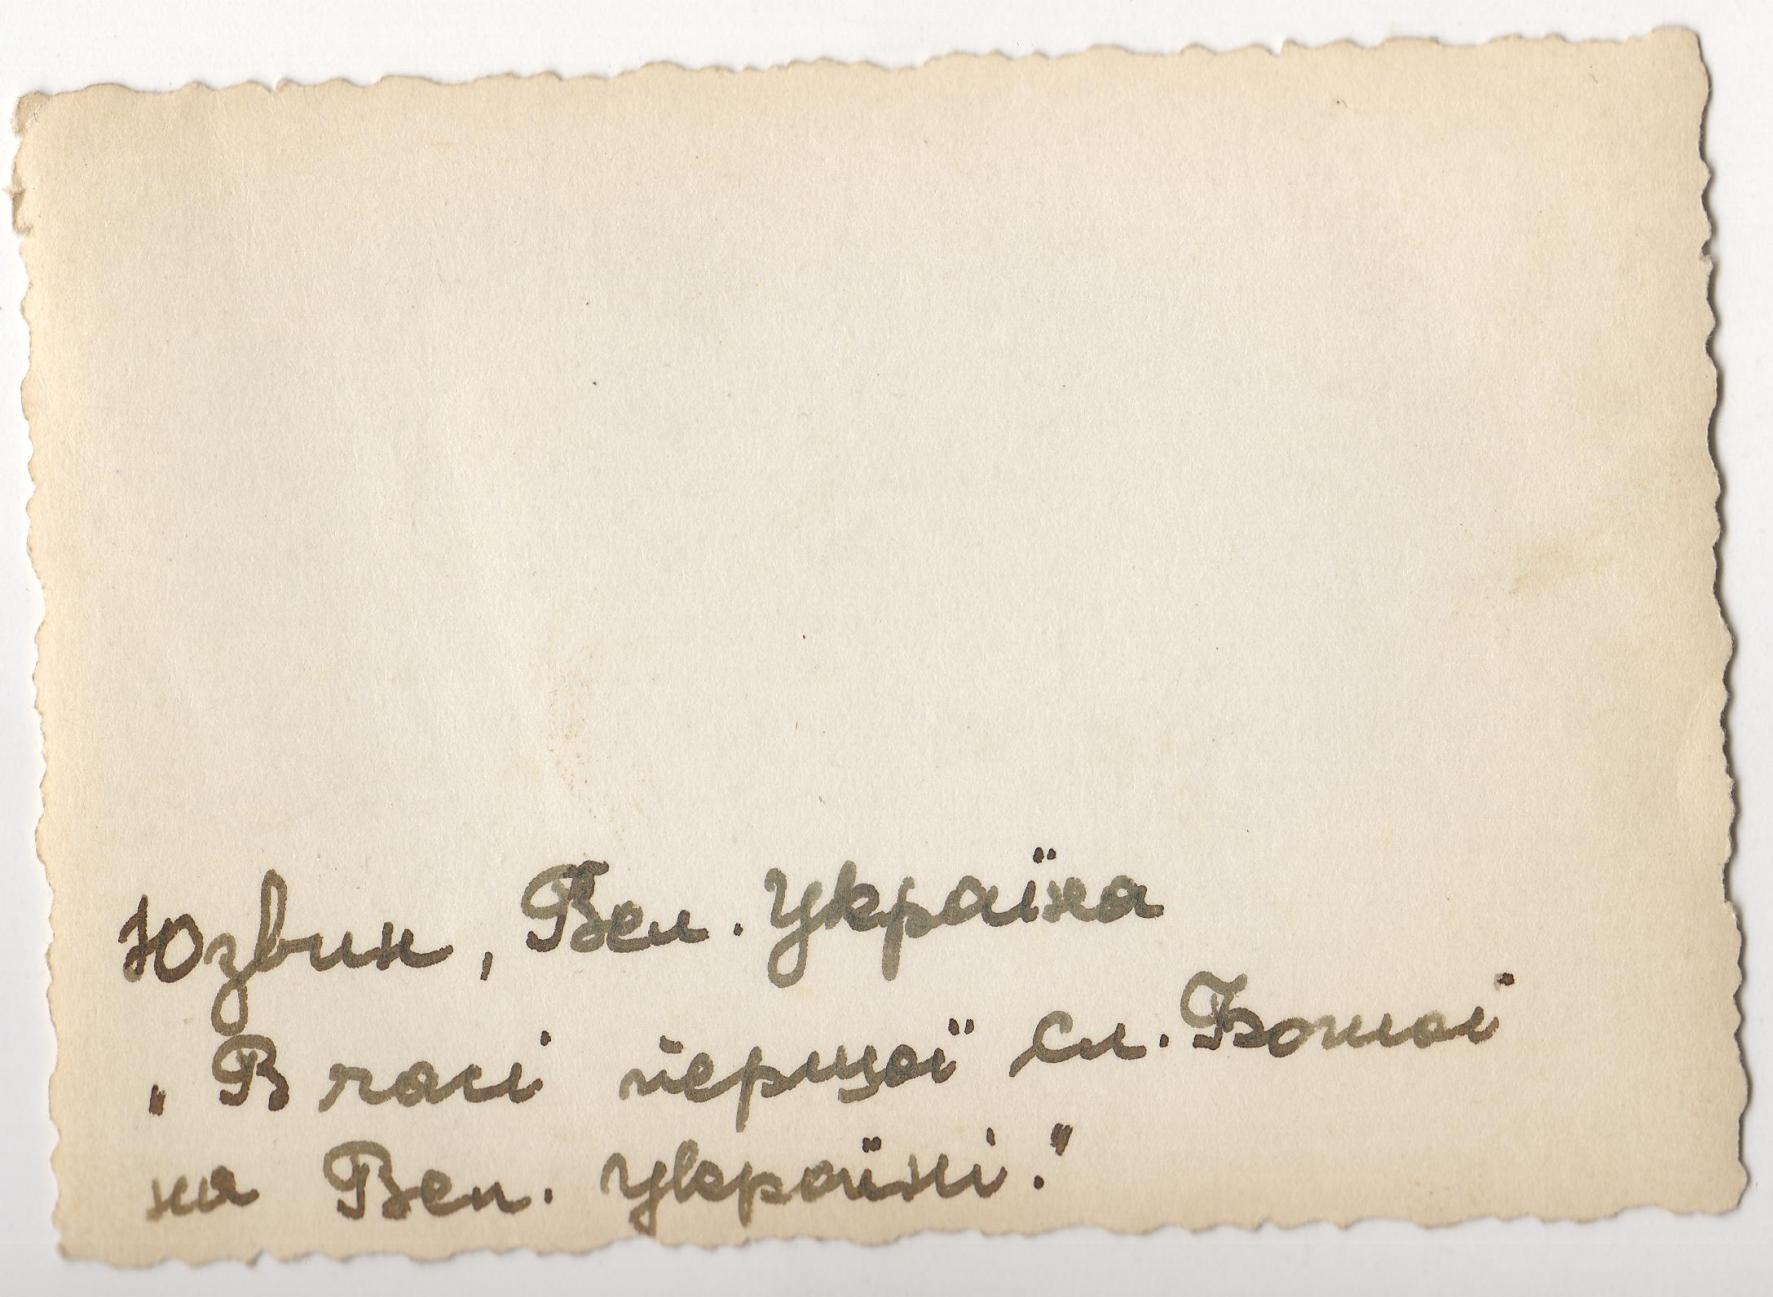 Юзвин, Вел. Україна
"В часі першої Сл. Божої
на Вел. Україні."